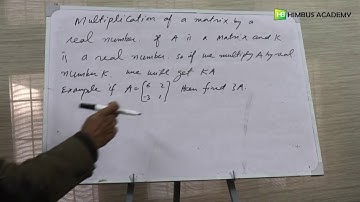 HIMBUS ACADEMY
Multiplication of a matrix by a
real number. if A is a matrix and K
is a real number. so if we multiply A by real
number K we will get KA
Example if A = [6 2
-3 1] then find 3A.